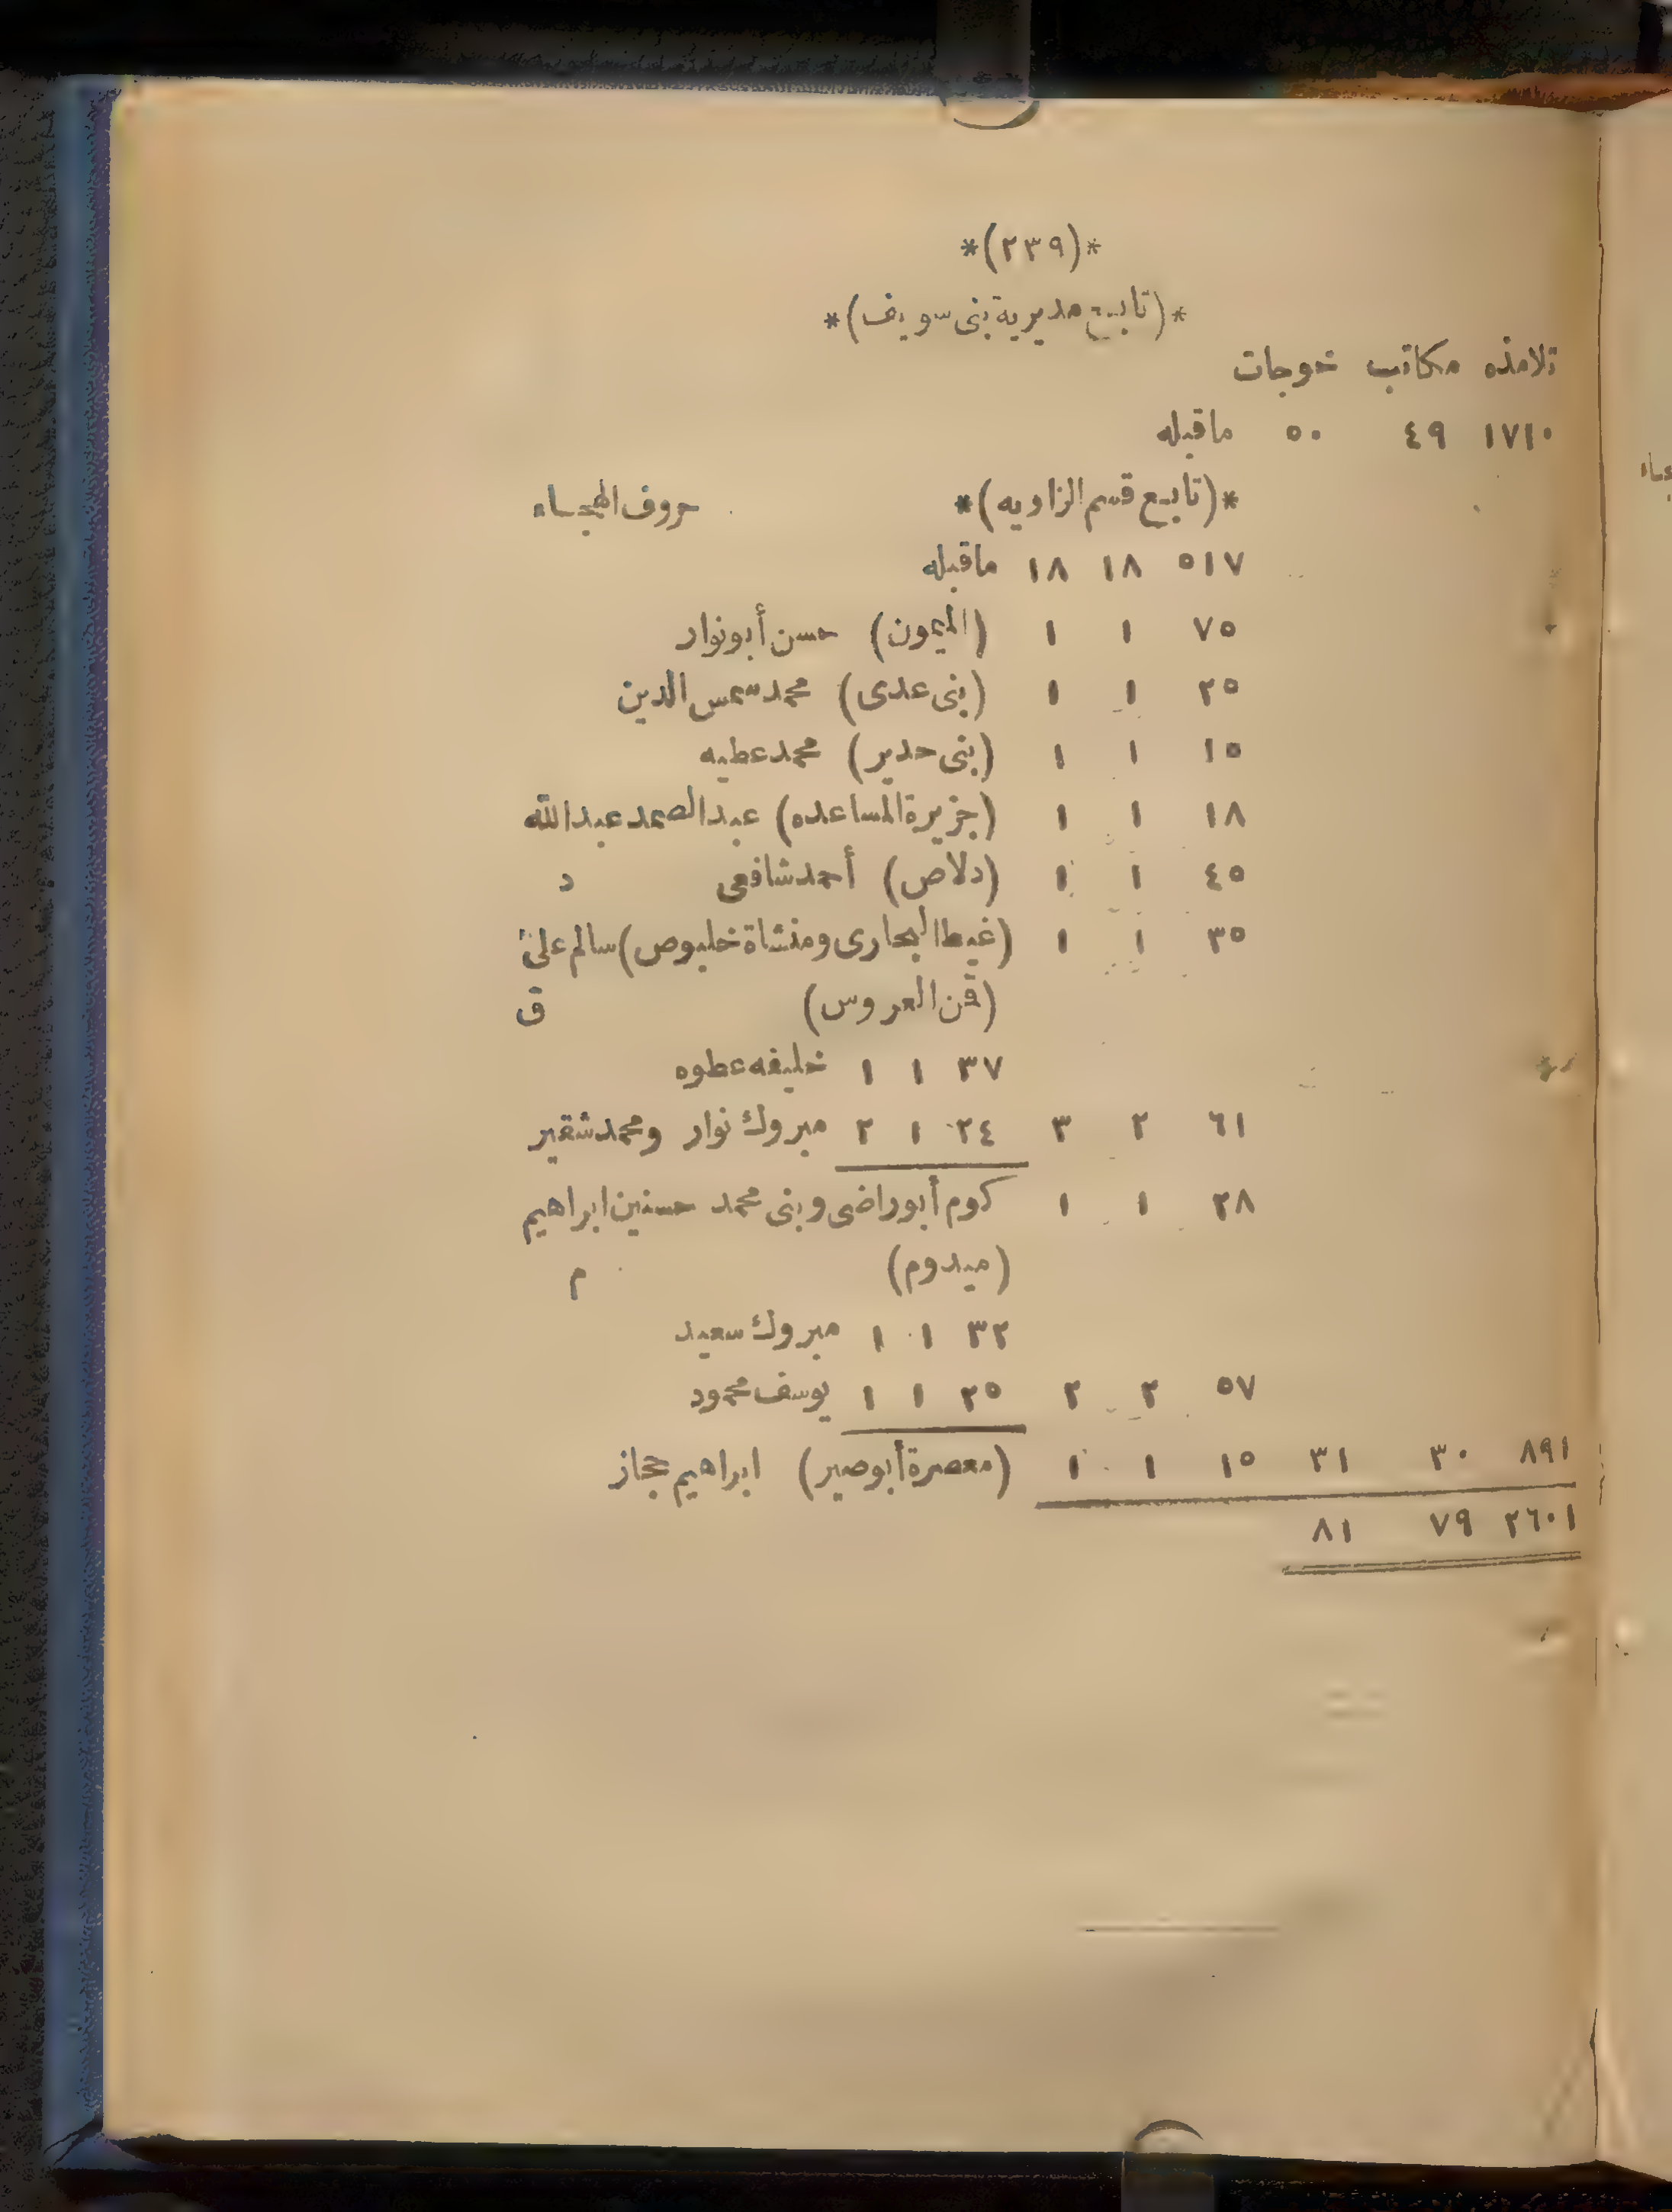 *(٢٣٩)*
*(تابع مديرية بنى سويف)*
تلامذه مكاتب خوجات
١٧١٠ ٤٩ ٥٠ ماقبله
*(تابع قسم الزاويه)* حروف الهجاء
٥١٧ ١٨ ١٨ ماقبله
٧٥ ١ ١ (الميمون) حسن أبونوار
٢٥ ١ ١ (بنى عدى) محمد شمس الدين
١٥ ١ ١ (بنى حدير) محمد عطيه
١٨ ١ ١ (جزيرة المساعده) عبد الصمد عبد الله
٤٥ ١ ١ (دلاص) أحمد شافعى د
٣٥ ١ ١ (غيط البحارى ومنشاة خلبوص) سالم على
(قمن العروس) ق
٣٧ ١ ١ خليفه عطوه
٦١ ٢ ٣ ٢٤ ١ ٢ مبروك نوار ومحمد شقير
٢٨ ١ ١ كوم أبوراضى وبنى محمد حسنين ابراهيم
(ميدوم) م
٣٢ ١ ١ مبروك سعيد
٥٧ ٢ ٢ ٢٥ ١ ١ يوسف محمود
٨٩١ ٣٠ ٣١ ١٥ ١ ١ (معصرة أبوصير) ابراهيم حجاز
٢٦٠١ ٧٩ ٨١